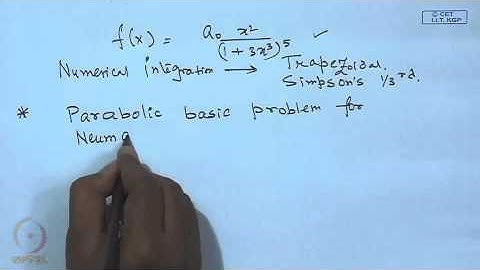 f(x) = a₀ x² / (1 + 3x³)⁵ ✓
Numerical integration → Trapezoidal.
Simpson's 1/3 rd.
* Parabolic basic problem for
Neuma
© CET
I.I.T. KGP
NPTEL